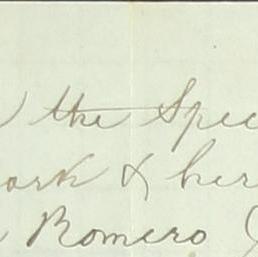 the Spec
ork & her
Romero (